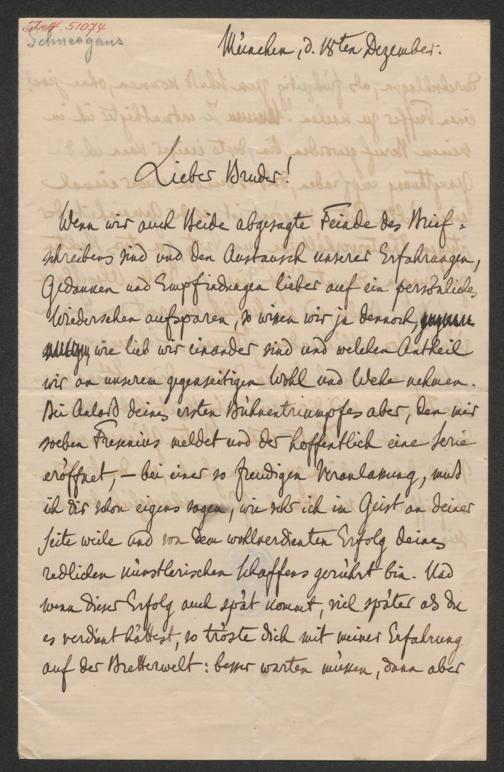 Teff. 51074
Schneegans
München, d. 18ten Dezember.
Lieber Bruder!
Wenn wir auch Beide abgesagte Feinde des Brief-
schreibens sind und den Austausch unserer Erfahrungen,
Gedanken und Empfindungen lieber auf ein persönliches
Wiedersehen aufsparen, so wissen wir ja dennoch,
wie lieb wir einander sind und welchen Antheil
wir an unserem gegenseitigen Wohl und Wehe nehmen.
Bei Anlaß deines ersten Bühnentriumpfes aber, den mir
soeben Fresenius meldet und der hoffentlich eine Serie
eröffnet, – bei einer so freudigen Veranlassung, muß
ich dir schon eigens sagen, wie sehr ich im Geist an deiner
Seite weile und von dem wohlverdienten Erfolg deines
redlichen künstlerischen Schaffens gerührt bin. Und
wenn dieser Erfolg auch spät kommt, viel später als du
es verdient hättest, so tröste dich mit meiner Erfahrung
auf der Bretterwelt: besser warten müssen, dann aber